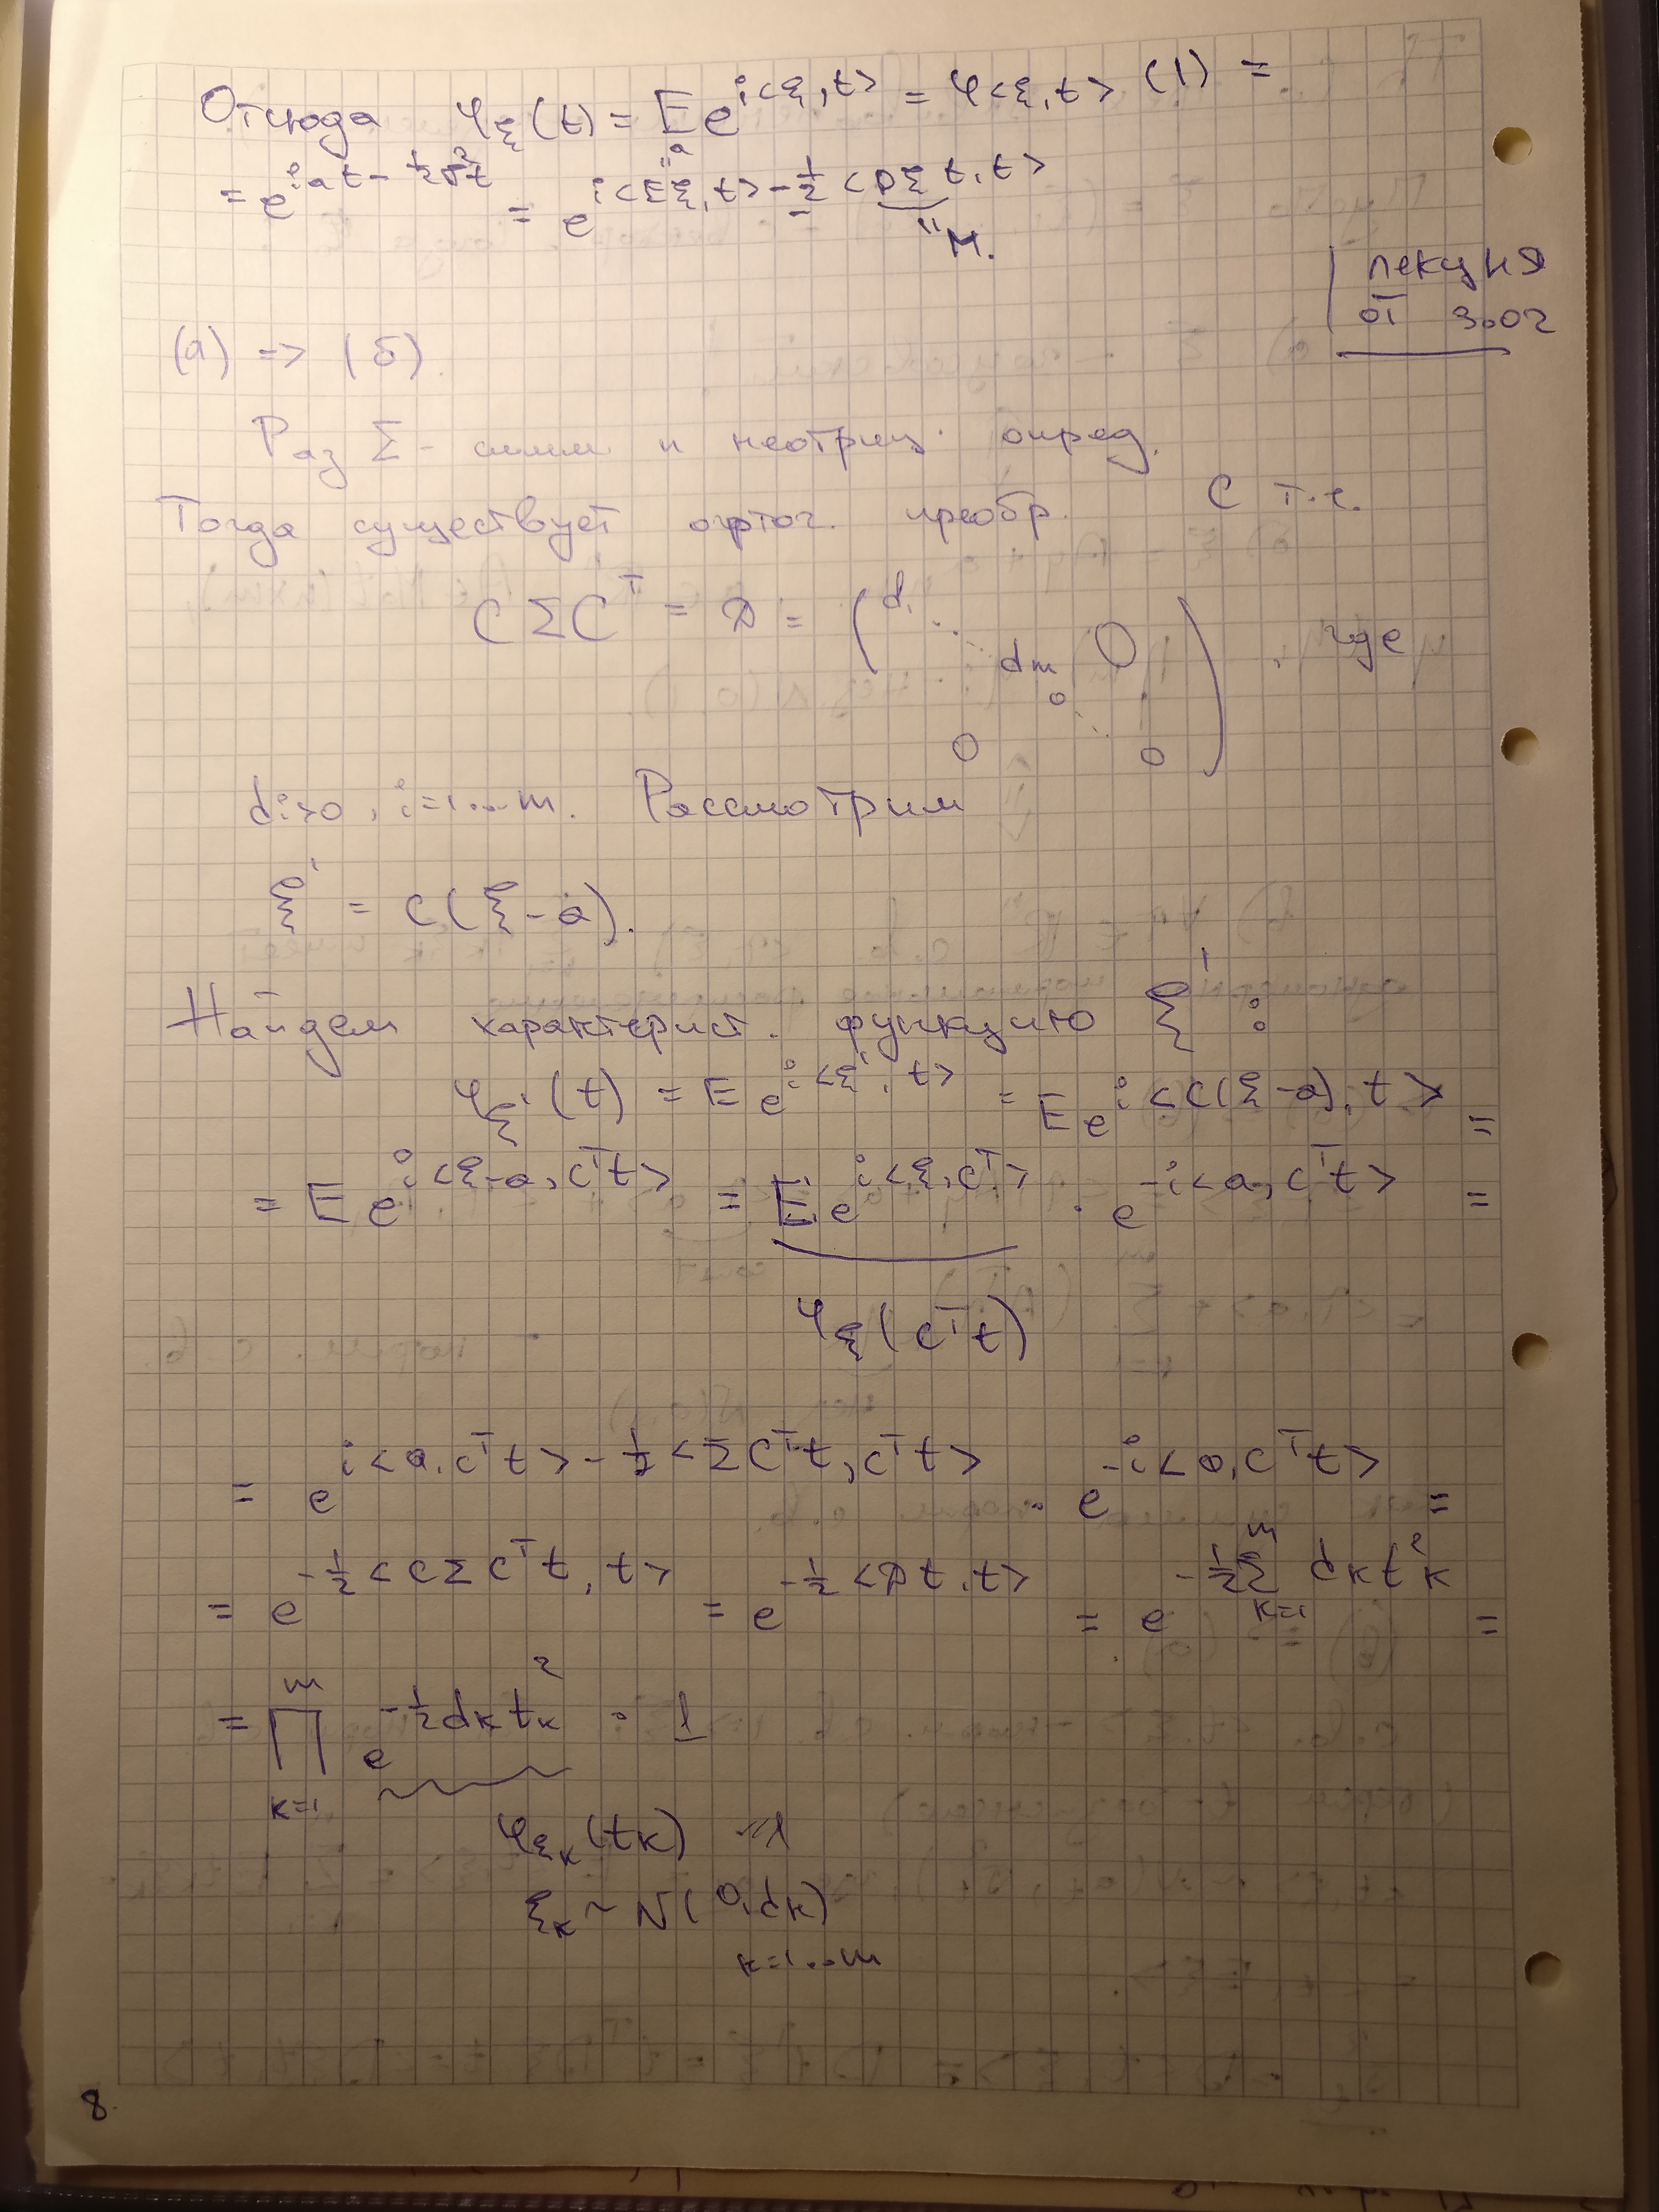 Отсюда φ_ξ(t) = E e^{i<ξ,t>} = φ_{<ξ,t>}(1) =
= e^{i a_t - 1/2 σ_t^2} = e^{i<Eξ,t> - 1/2 <Dξ t,t>}
"a
"M.
лекция
от 3.02
(а) => (б).
Раз Σ - симм и неотриц. опред.
Тогда существует ортог. преобр. C т.е.
CΣC^T = D = (d_1 ⋱ d_m 0 ⋱ 0), где
d_i>0, i=1...m. Рассмотрим
ξ' = C(ξ-a).
Найдем характерист. функцию ξ':
φ_ξ'(t) = E e^{i<ξ',t>} = E e^{i<C(ξ-a),t>} =
= E e^{i<ξ-a,C^T t>} = E e^{i<ξ,C^T>} · e^{-i<a,C^T t>} =
φ_ξ(C^T t)
= e^{i<a,C^T t> - 1/2 <ΣC^T t,C^T t>} · e^{-i<a,C^T t>} =
= e^{-1/2 <CΣC^T t,t>} = e^{-1/2 <Dt,t>} = e^{-1/2 Σ_{k=1}^m d_k t_k^2} =
= ∏_{k=1}^m e^{-1/2 d_k t_k^2} · 1
φ_{ξ_k}(t_k)
ξ_k ~ N(0,d_k)
k=1..m
8.